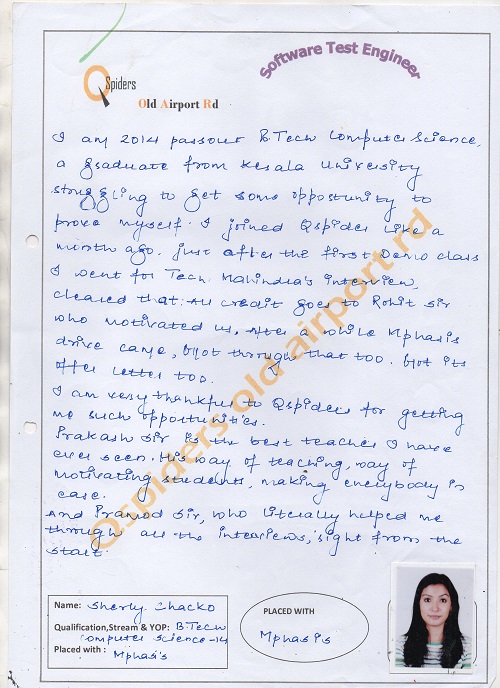 Software Test Engineer
QSpiders
Old Airport Rd
I am 2014 passout B.Tech Computer Science,
a graduate from Kerala University
struggling to get some opportunity to
prove myself. I joined Qspider like a
month ago. Just after the first Demo class
I went for Tech. Mahindra's interview,
cleared that. All credit goes to Rohit sir
who motivated us. After a while Mphasis
drive came, Got through that too. Got its
offer letter too.
I am very thankful to Qspiders for getting
me such opportunities.
Prakash sir is the best teacher I have
ever seen. His way of teaching, way of
motivating students, making everybody in
ease.
And Pramod Sir, who literally helped me
through all the interviews, right from the
start.
Qspiders old airport rd
Name: Sherly Chacko
Qualification,Stream & YOP: B.Tech
Computer Science-14
Placed with : Mphasis
PLACED WITH
Mphasis